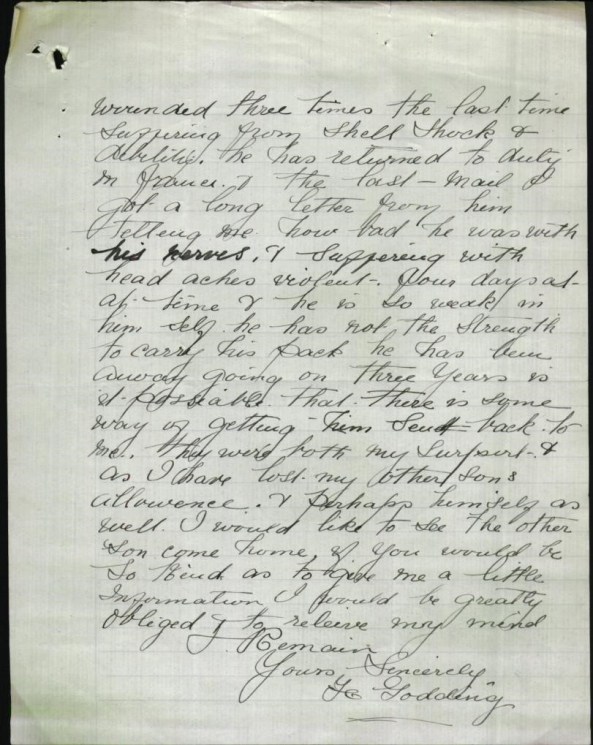 wounded three times the last time
Suffering from Shell Shock &
debilitie. he has returned to duty
in France. & the last - mail I
got a long letter from him
telling me how bad he was with
his nerves, & Suffering with
head aches violent - four days at -
at time & he is so weak in
him self he has not the Strength
to carry his pack he has been
away going on three years is
it possable that there is some
way of getting him Send back to
me. they were both my Surport - &
as I have lost my other sons
allowence. & perhapps himself as
well. I would like to see the other
son come home, if you would be
So kind as to give me a little
Information I would be greatly
obliged & to releive my mind
I Remain
Yours Sincerely
Godding